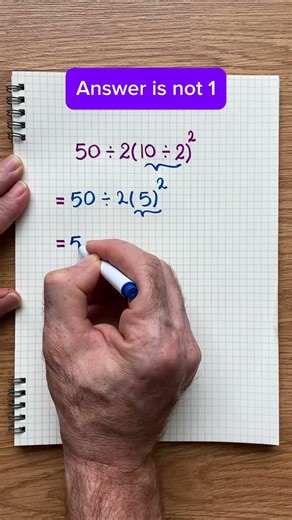 Answer is not 1
50 ÷ 2(10 ÷ 2)²
= 50 ÷ 2(5)²
= 5